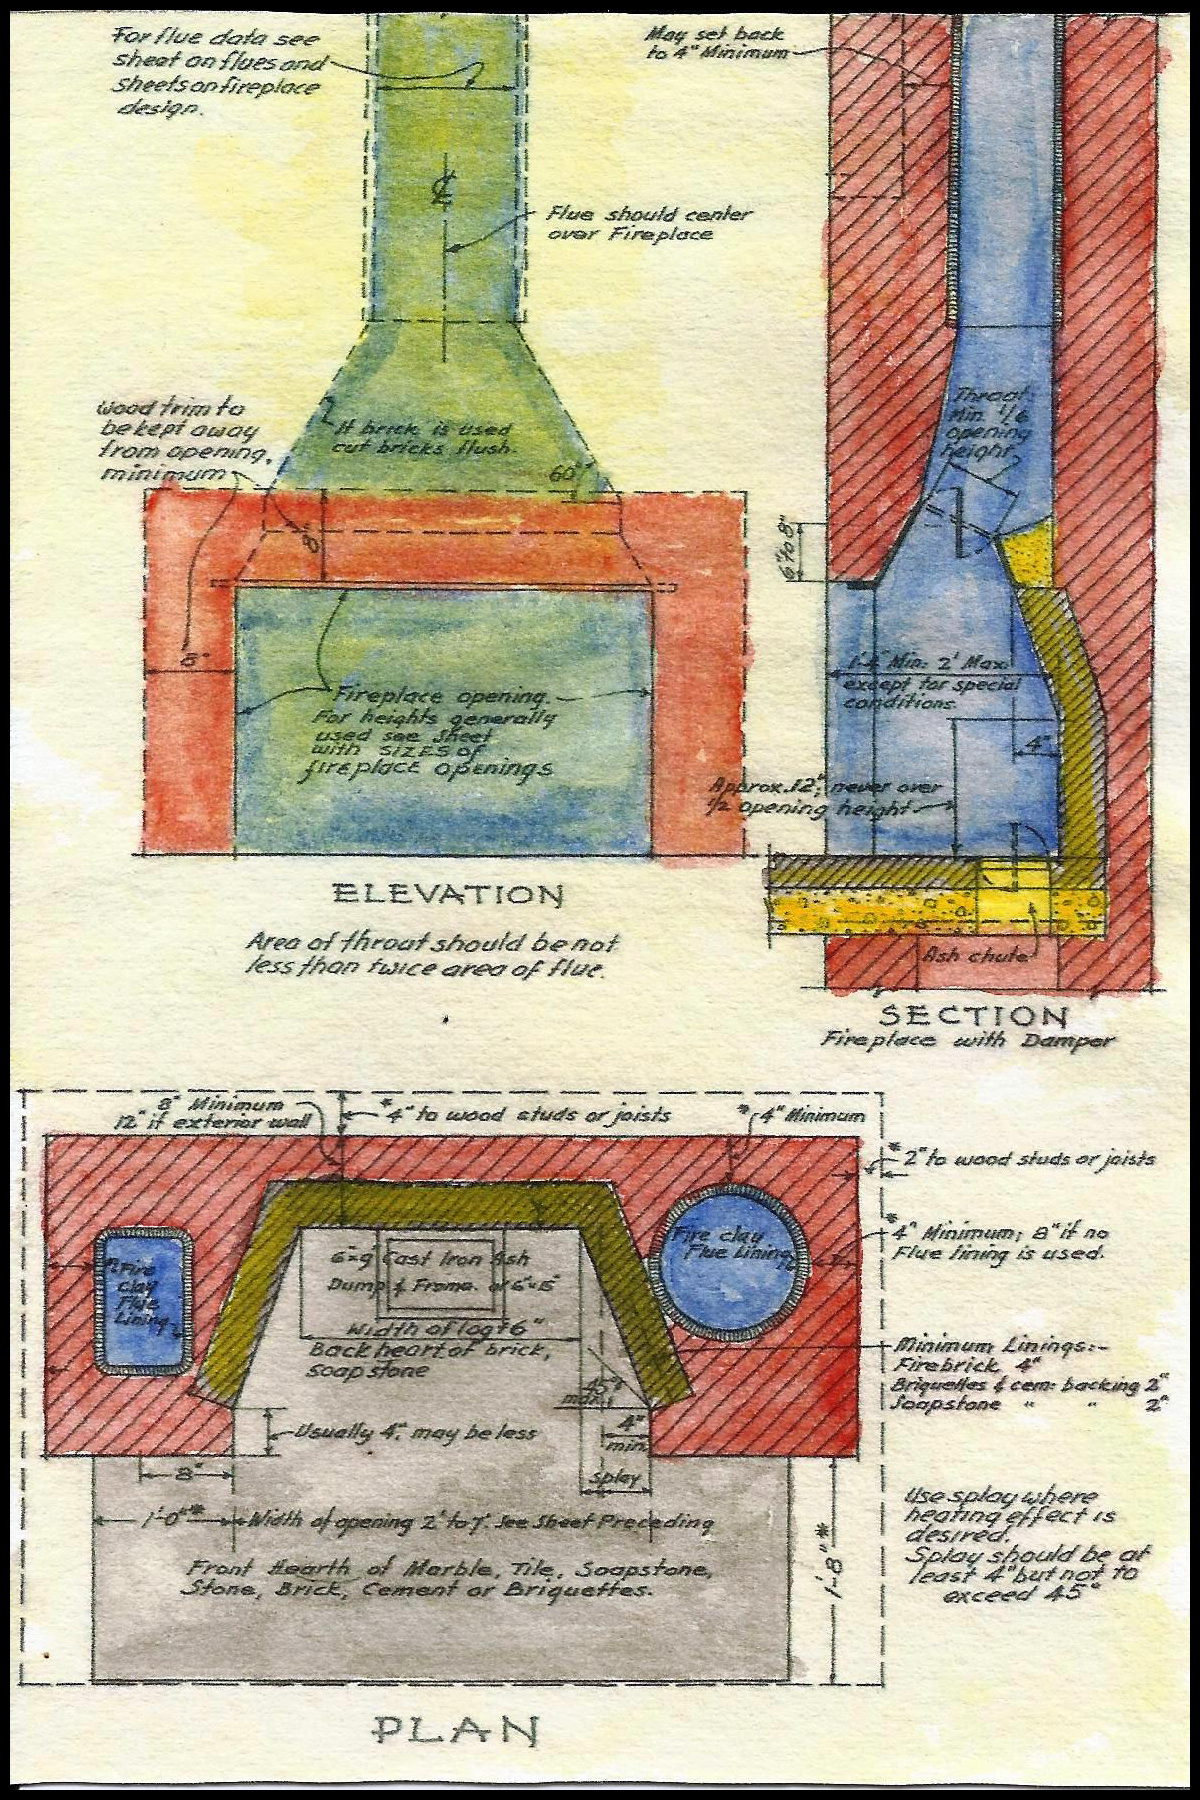 For flue data see
sheet on flues and
sheets on fireplace
design.
May set back
to 4" Minimum
℄
Flue should center
over Fireplace
Wood trim to
be kept away
from opening,
minimum
If brick is used
cut bricks flush.
60°
8"
8"
Fireplace opening
For heights generally
used see sheet
with SIZES of
fireplace openings
ELEVATION
Area of throat should be not
less than twice area of flue.
Throat
Min. 1/6
opening
height,
6" to 8"
1'-4" Min. 2' Max.
except for special
conditions
4"
Approx. 12", never over
1/2 opening height
Ash chute
SECTION
Fireplace with Damper
8" Minimum
12" if exterior wall
*4" to wood studs or joists
*4" Minimum
*2" to wood studs or joists
Fire clay
Flue Lining
Fire
clay
Flue
Lining
*4" Minimum; 8" if no
Flue lining is used.
Cast Iron Ash
Dump & Frame. or
Width of log + 6"
Back heart of brick,
soapstone
Minimum Linings:-
Firebrick 4"
Briquettes & cem: backing 2"
Soapstone " " 2"
45°
max.
4"
min.
splay
Usually 4", may be less
8"
1'-0"*
Width of opening 2' to 7'. See Sheet Preceding
Front Hearth of Marble, Tile, Soapstone,
Stone, Brick, Cement or Briquettes.
1'-8"*
Use splay where
heating effect is
desired.
Splay should be at
least 4" but not to
exceed 45°
PLAN